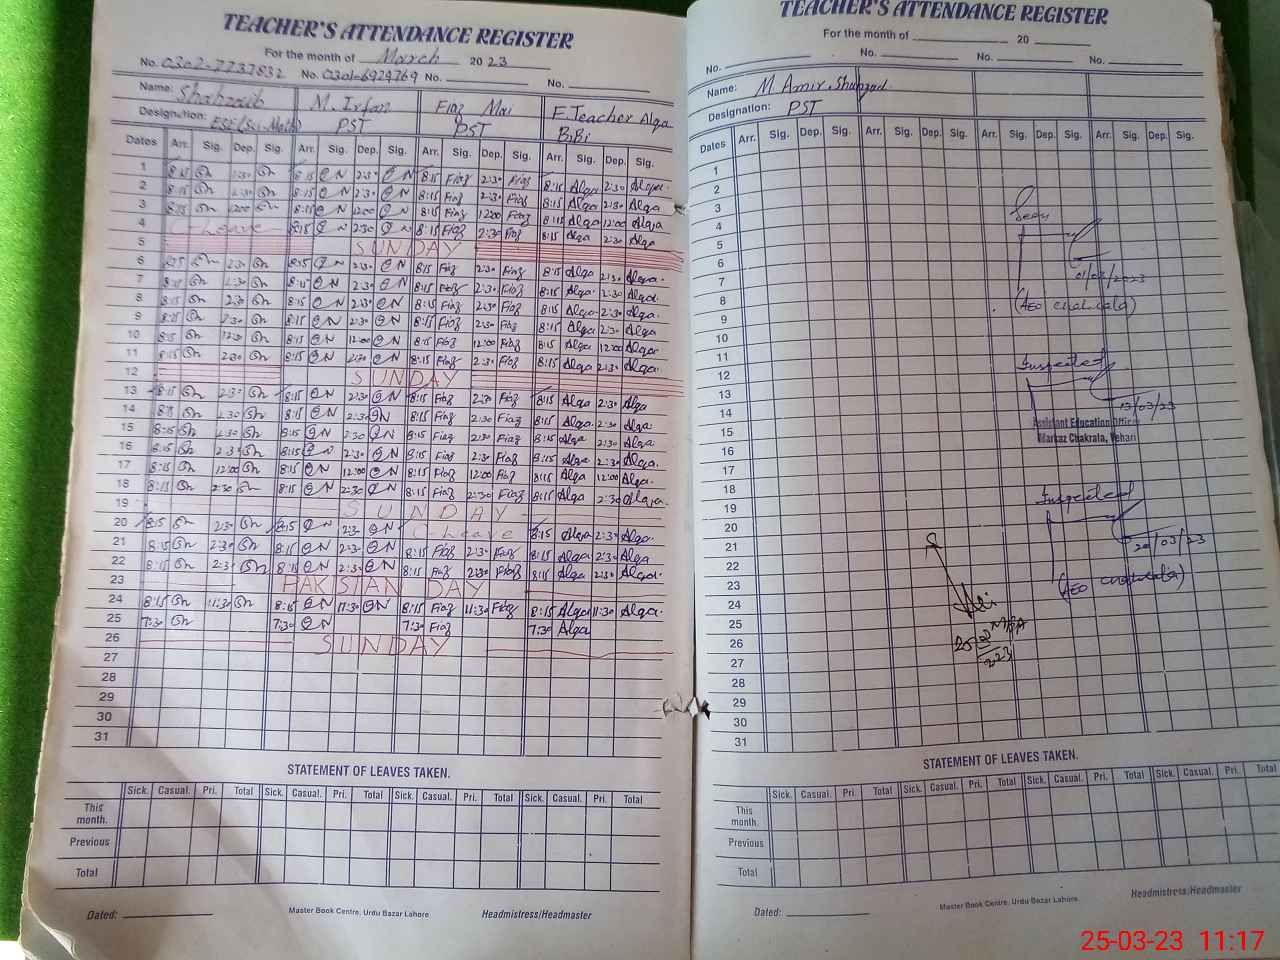 TEACHER'S ATTENDANCE REGISTER
For the month of March 20 23
No. 0302-7737832 No. 0301-6929769 No. No.
Name: Shahzaib M. Irfan Fiaz Mai E.Teacher Alqa
Designation: ESE(Sci-Math) PST PST BiBi
Dates Arr. Sig. Dep. Sig. Arr. Sig. Dep. Sig. Arr. Sig. Dep. Sig. Arr. Sig. Dep. Sig.
1 8:15 2:30 8:15 2:30 8:15 Fiaz 2:30 Fiaz 8:15 Alqa 2:30 Alqa
2 8:15 2:30 8:15 2:30 8:15 Fiaz 2:30 Fiaz 8:15 Alqa 2:30 Alqa
3 8:15 12:00 8:15 12:00 8:15 Fiaz 12:00 Fiaz 8:15 Alqa 12:00 Alqa
4 C-Leave 8:15 2:30 8:15 Fiaz 2:30 Fiaz 8:15 Alqa 2:30 Alqa
5 SUNDAY
6 8:15 2:30 8:15 2:30 8:15 Fiaz 2:30 Fiaz 8:15 Alqa 2:30 Alqa
7 8:15 2:30 8:15 2:30 8:15 Fiaz 2:30 Fiaz 8:15 Alqa 2:30 Alqa
8 8:15 2:30 8:15 2:30 8:15 Fiaz 2:30 Fiaz 8:15 Alqa 2:30 Alqa
9 8:15 2:30 8:15 2:30 8:15 Fiaz 2:30 Fiaz 8:15 Alqa 2:30 Alqa
10 8:15 12:00 8:15 12:00 8:15 Fiaz 12:00 Fiaz 8:15 Alqa 12:00 Alqa
11 8:15 2:30 8:15 2:30 8:15 Fiaz 2:30 Fiaz 8:15 Alqa 2:30 Alqa
12 SUNDAY
13 8:15 2:30 8:15 2:30 8:15 Fiaz 2:30 Fiaz 8:15 Alqa 2:30 Alqa
14 8:15 2:30 8:15 2:30 8:15 Fiaz 2:30 Fiaz 8:15 Alqa 2:30 Alqa
15 8:15 2:30 8:15 2:30 8:15 Fiaz 2:30 Fiaz 8:15 Alqa 2:30 Alqa
16 8:15 2:30 8:15 2:30 8:15 Fiaz 2:30 Fiaz 8:15 Alqa 2:30 Alqa
17 8:15 12:00 8:15 12:00 8:15 Fiaz 12:00 Fiaz 8:15 Alqa 12:00 Alqa
18 8:15 2:30 8:15 2:30 8:15 Fiaz 2:30 Fiaz 8:15 Alqa 2:30 Alqa
19 SUNDAY
20 8:15 2:30 8:15 2:30 C Leave 8:15 Alqa 2:30 Alqa
21 8:15 2:30 8:15 2:30 8:15 Fiaz 2:30 Fiaz 8:15 Alqa 2:30 Alqa
22 8:15 2:30 8:15 2:30 8:15 Fiaz 2:30 Fiaz 8:15 Alqa 2:30 Alqa
23 PAKISTAN DAY
24 8:15 11:30 8:15 11:30 8:15 Fiaz 11:30 Fiaz 8:15 Alqa 11:30 Alqa
25 7:30 7:30 7:30 Fiaz 7:30 Alqa
26 SUNDAY
27
28
29
30
31
STATEMENT OF LEAVES TAKEN.
Sick. Casual. Pri. Total Sick. Casual. Pri. Total Sick. Casual. Pri. Total Sick. Casual. Pri. Total
This month.
Previous
Total
Dated: Master Book Centre, Urdu Bazar Lahore Headmistress/Headmaster
TEACHER'S ATTENDANCE REGISTER
For the month of 20
No. No. No. No.
Name: M Amir Shahzad
Designation: PST
Dates Arr. Sig. Dep. Sig. Arr. Sig. Dep. Sig. Arr. Sig. Dep. Sig. Arr. Sig. Dep. Sig.
1
2
3
4
5
6
7
8
9
10
11
12
13
14
15
16
17
18
19
20
21
22
23
24
25
26
27
28
29
30
31
Seen
01/03/2023
(AEO Chakrala)
Inspected
13/03/23
Assistant Education Officer
Markaz Chakrala, Vehari
Inspected
20/03/23
(AEO Chakrala)
STATEMENT OF LEAVES TAKEN.
Sick. Casual. Pri. Total Sick. Casual. Pri. Total Sick. Casual. Pri. Total Sick. Casual. Pri. Total
This month.
Previous
Total
Dated: Master Book Centre, Urdu Bazar Lahore Headmistress/Headmaster
25-03-23 11:17